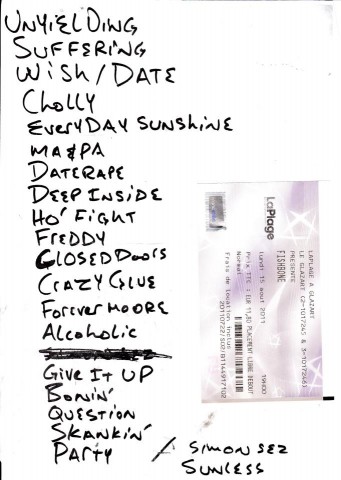 UNYIELDING
SUFFERING
WISH/DATE
Cholly
EVERYDAY SUNSHINE
MA&PA
DATERAPE
DEEP INSIDE
HO' FIGHT
FREDDY
CLOSED DOORS
CRAZY GLUE
ForeverMOORE
Alcoholic
GIVE IT UP
BONIN'
QUESTION
SKANKIN'
PARTY / SIMON SEZ
SUNLESS
LaPlage
LAPLAGE A GLAZART
LE GLAZART (2-1017245 & 3-1017246)
PRESENTE
FISHBONE
Lundi 15 aout 2011 19H00
Prix TTC : EUR 11,80 PLACEMENT LIBRE DEBOUT
Normal
Frais de location inclus